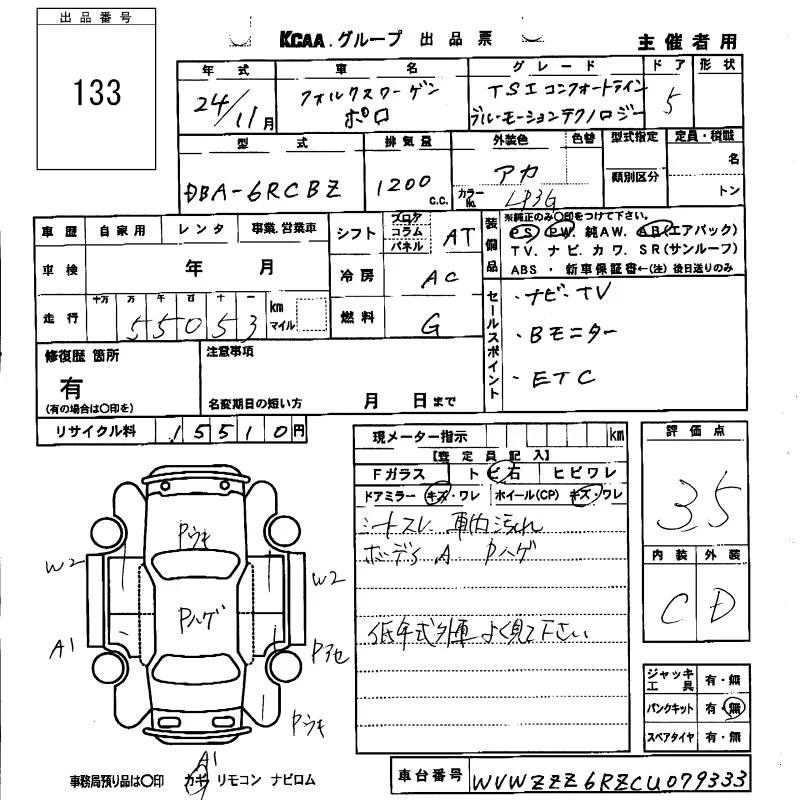 出品番号
133
KCAA.グループ 出品票
主催者用
年式 車名 グレード ドア 形状
24/11月 フォルクスワーゲン ポロ TSIコンフォートライン ブルーモーションテクノロジー 5
型式 排気量 外装色 色替 型式指定 定員・積載
DBA-6RCBZ 1200 C.C. アカ カラーNo. LP3G 類別区分 名
トン
車歴 自家用 レンタ 事業.営業車
車検 年 月
走行 十万 万 千 百 十 一 km マイル
55053
シフト フロア コラム パネル AT
冷房 AC
燃料 G
装備品
※純正のみ〇印をつけて下さい。
PS. PW. 純AW. AB(エアバック)
TV. ナビ. カワ. SR(サンルーフ)
ABS・新車保証書←(注)後日送りのみ
セールスポイント
・ナビ・TV
・Bモニター
・ETC
修復歴 箇所
有
(有の場合は〇印を)
注意事項
名変期日の短い方 月 日まで
リサイクル料 15510円
現メーター指示 km
【査定員記入】
Fガラス ト ビ石 ヒビワレ
ドアミラー キズ・ワレ ホイール(CP) キズ・ワレ
シートスレ 車内汚れ
ボディA Pハゲ
低年式外車 よく見て下さい
評価点
3.5
内装 外装
C D
ジャッキ工具 有・無
パンクキット 有・無
スペアタイヤ 有・無
Pウキ
W2
W2
Pハゲ
A1
Pアセ
Pウキ
A1
事務局預り品は〇印 カギ リモコン ナビロム
車台番号 WVWZZZ6RZCU079333